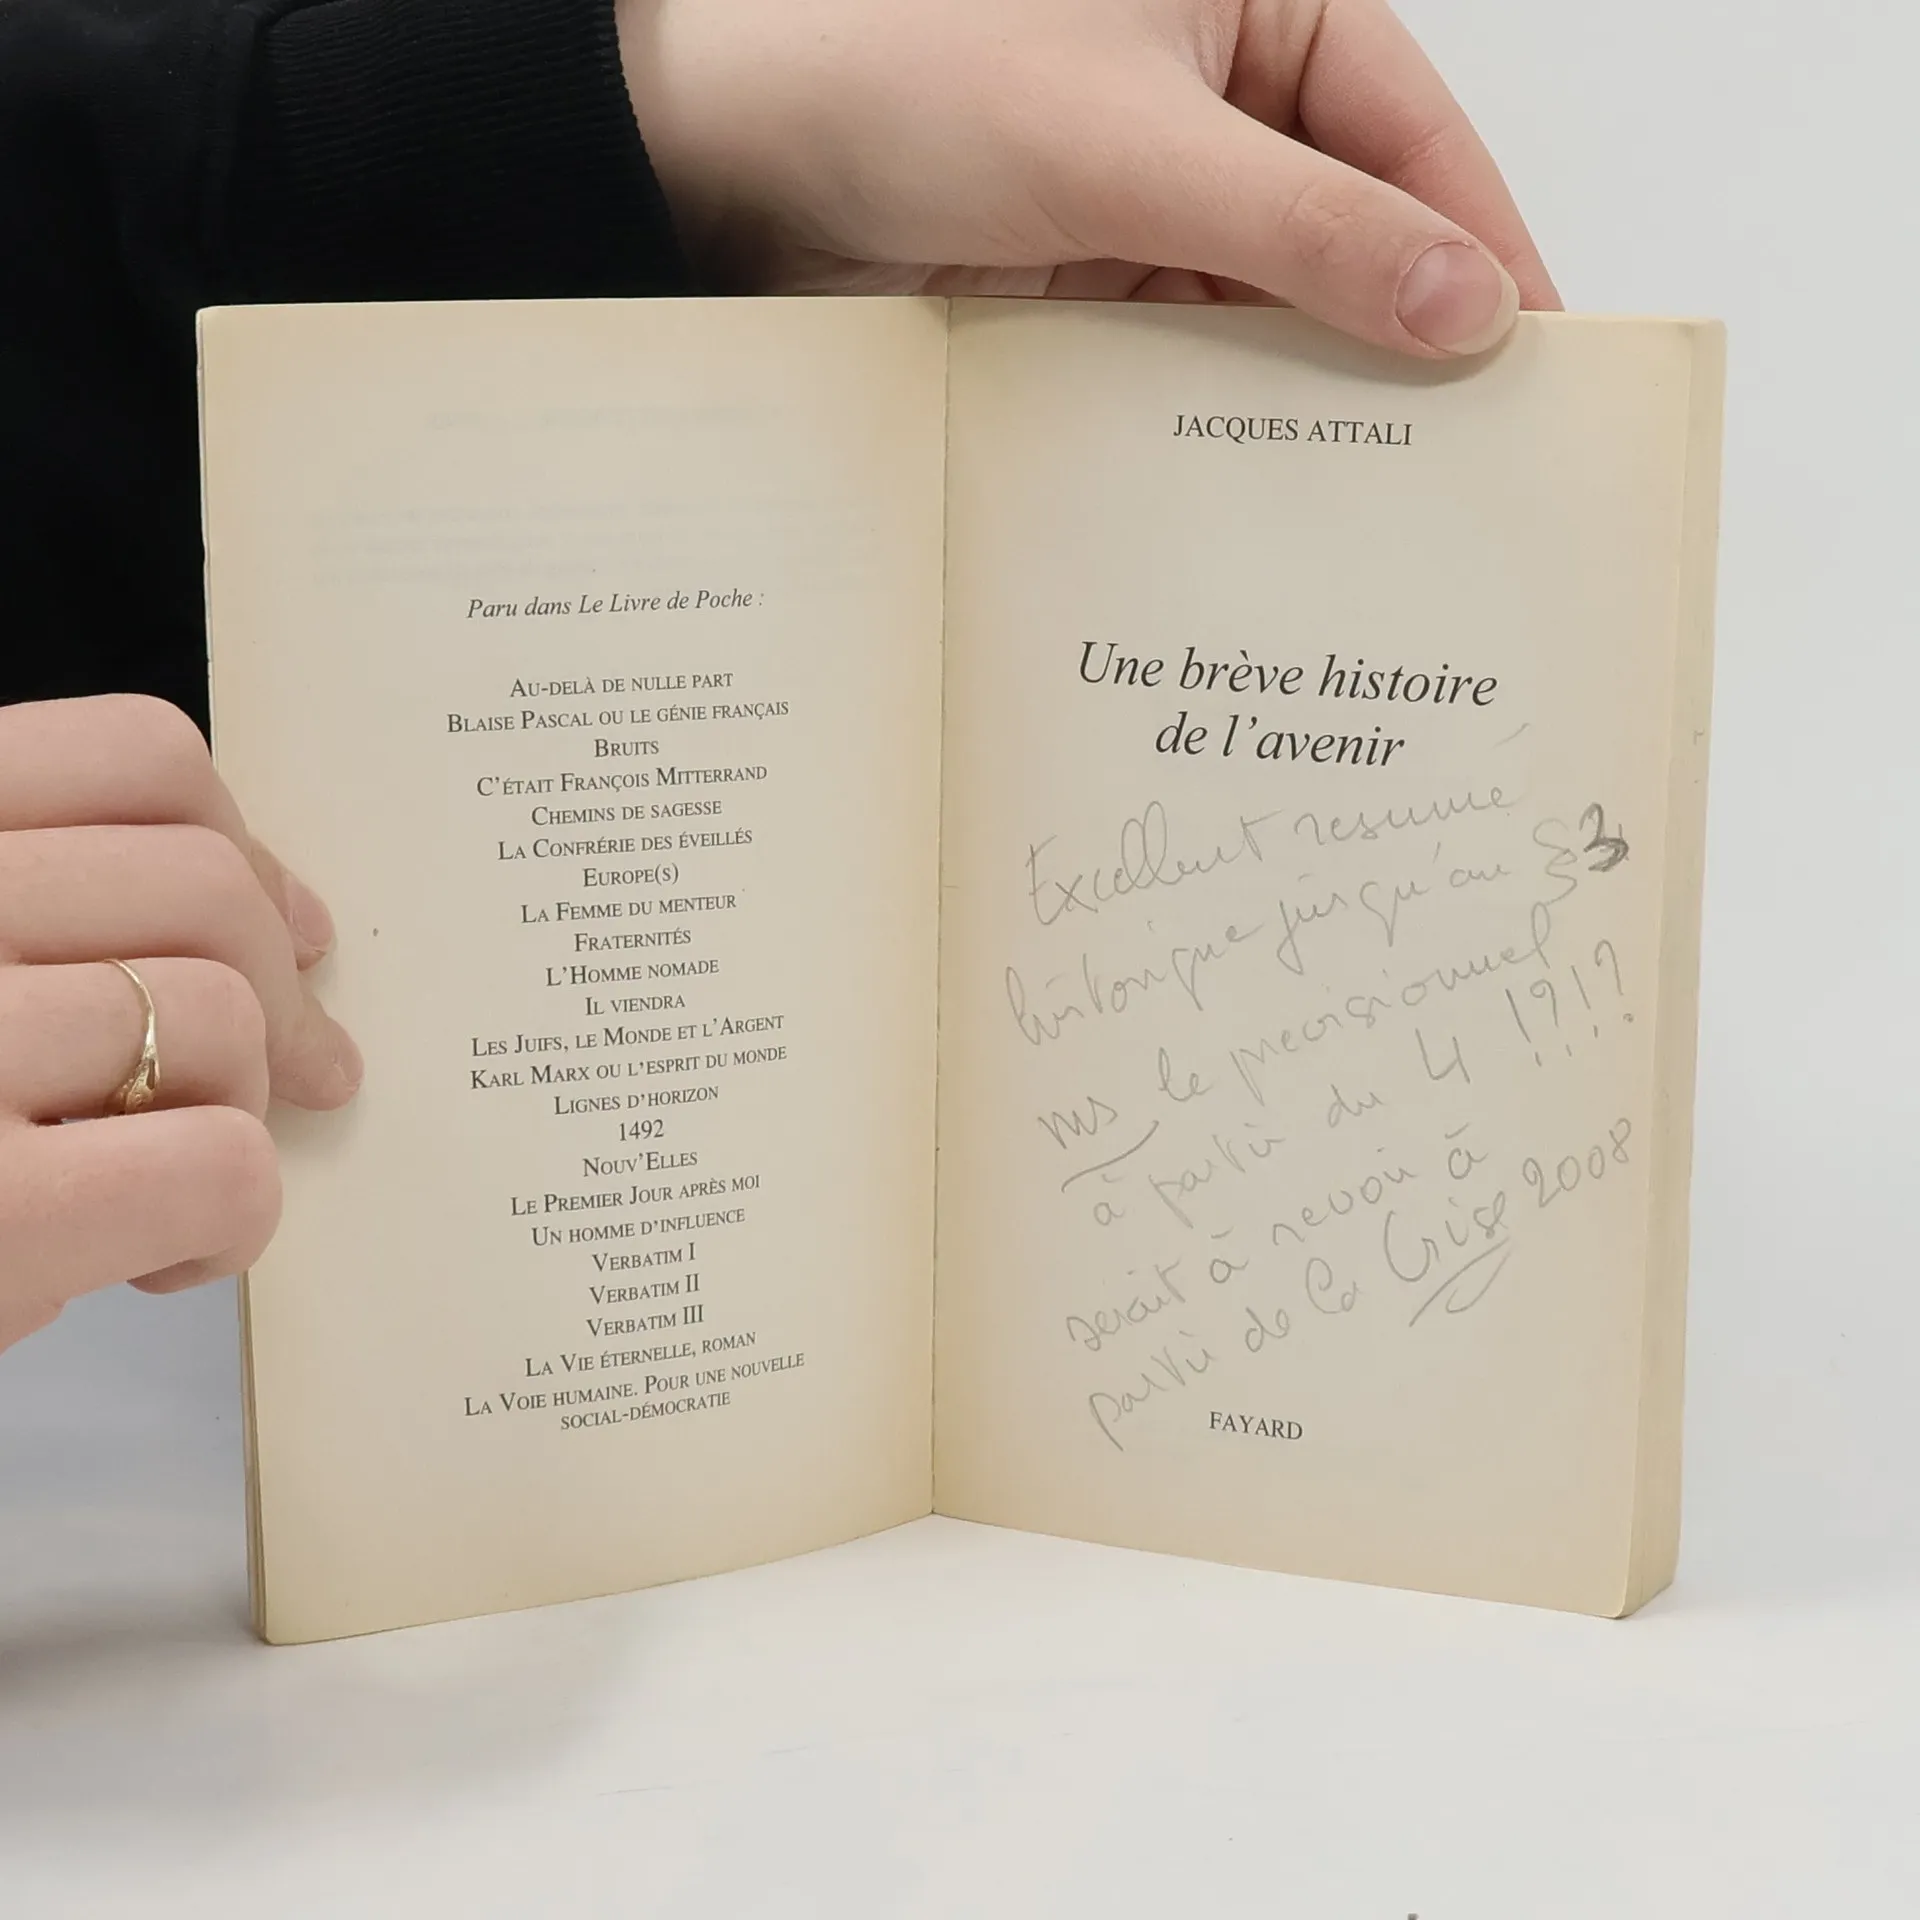 Paru dans Le Livre de Poche :
AU-DELÀ DE NULLE PART
BLAISE PASCAL OU LE GÉNIE FRANÇAIS
BRUITS
C'ÉTAIT FRANÇOIS MITTERRAND
CHEMINS DE SAGESSE
LA CONFRÉRIE DES ÉVEILLÉS
EUROPE(S)
LA FEMME DU MENTEUR
FRATERNITÉS
L'HOMME NOMADE
IL VIENDRA
LES JUIFS, LE MONDE ET L'ARGENT
KARL MARX OU L'ESPRIT DU MONDE
LIGNES D'HORIZON
1492
NOUV'ELLES
LE PREMIER JOUR APRÈS MOI
UN HOMME D'INFLUENCE
VERBATIM I
VERBATIM II
VERBATIM III
LA VIE ÉTERNELLE, ROMAN
LA VOIE HUMAINE. POUR UNE NOUVELLE
SOCIAL-DÉMOCRATIE
JACQUES ATTALI
Une brève histoire
de l'avenir
Excellent resumé
historique jusqu'au §3
ms le previsionnel
à partir du 4 !?!?
serait à revoir à
partir de la Crise 2008
FAYARD